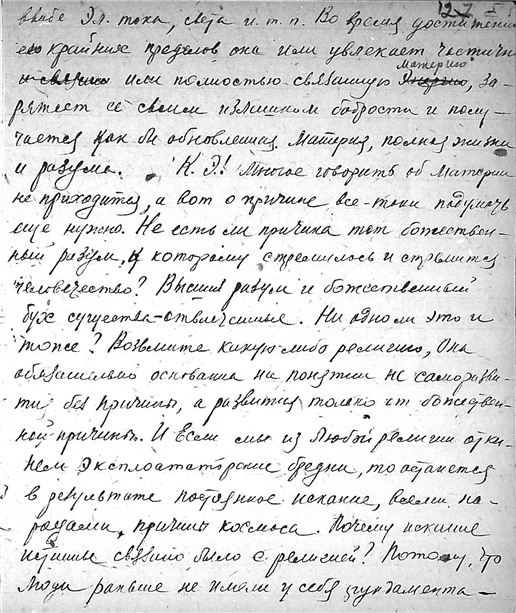 12.7
ввиде Эл. тока, света и. т. п. Во время достижения
его крайних пределов она или увлекает частичн
или полностью связанную материю, за-
ряжает ее своим излишком бодрости и полу-
чается как бы обновленная Материя, полная жизни
и разума. К. Э! Многое говорить об материи
не приходится, а вот о причине все-таки подумать
еще нужно. Не есть ли причина тот божествен-
ный разум, к которому стремилось и стремится
человечество? Высший разум и божественный
дух существа-отвлеченные. Ни одно ли это и
тоже? Возьмите какую либо религию, Она
обязательно основана на понятии не саморазви-
тия без причины, а развития только от божествен-
ной причины. И Если мы из Любой религии отки-
нем эксплоататорские бредни, то останется
в результате постоянное искание, всеми на-
родами, причины космоса. Почему искание
истины связано было с религией? Потому, что
люди раньше не имели у себя фундамента-